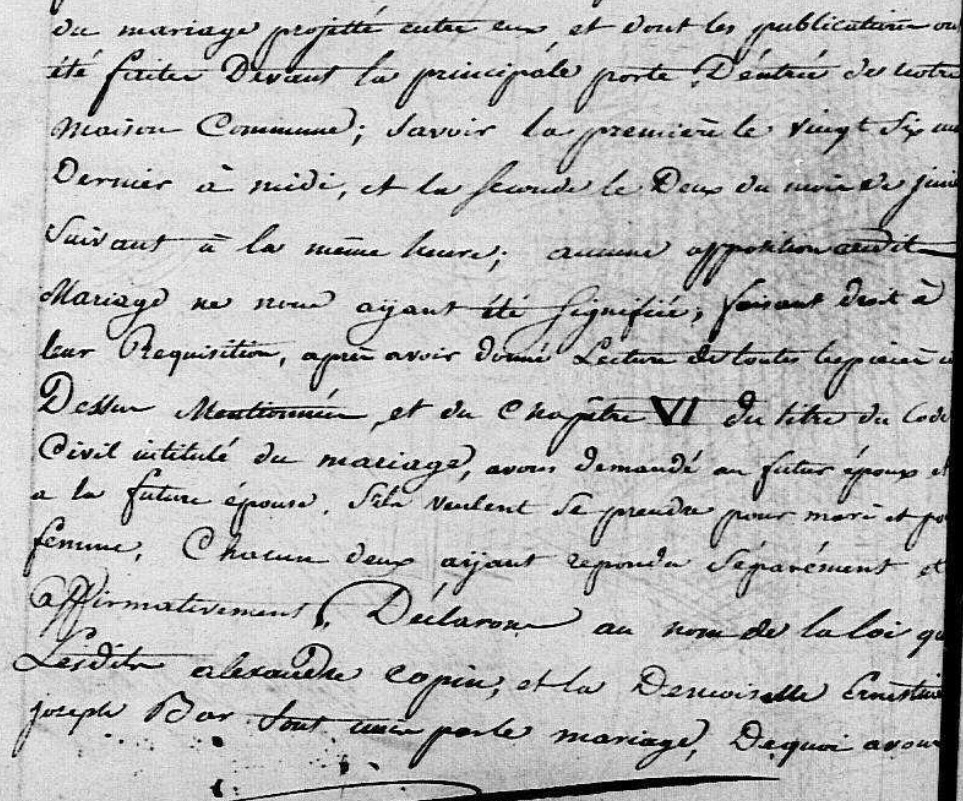 du mariage projetté entre eux et dont les publications on
été faites Devant la principale porte D'entrée de notre
Maison Commune; Savoir la première le vingt Six
Dernier à midi, et la Seconde le Deux du mois de juin
Suivant à la même heure; aucune opposition audit
Mariage ne nous ayant été Signifiée, faisant droit à
leur Requisition, après avoir donné Lecture de toutes les pièces
Dessus Mentionnées, et du Chapitre VI du titre du Code
Civil intitulé du mariage, avons demandé au futur époux et
a la future épouse, S'ils veulent Se prendre pour mari et po
femme, Chacun deux ayant repondu Séparément et
affirmativement, Déclarons au nom de la loi qu
Lesdits alexandre Copin, et la Demoiselle Ernestine
joseph Bar Sont unis par le mariage, De quoi avons